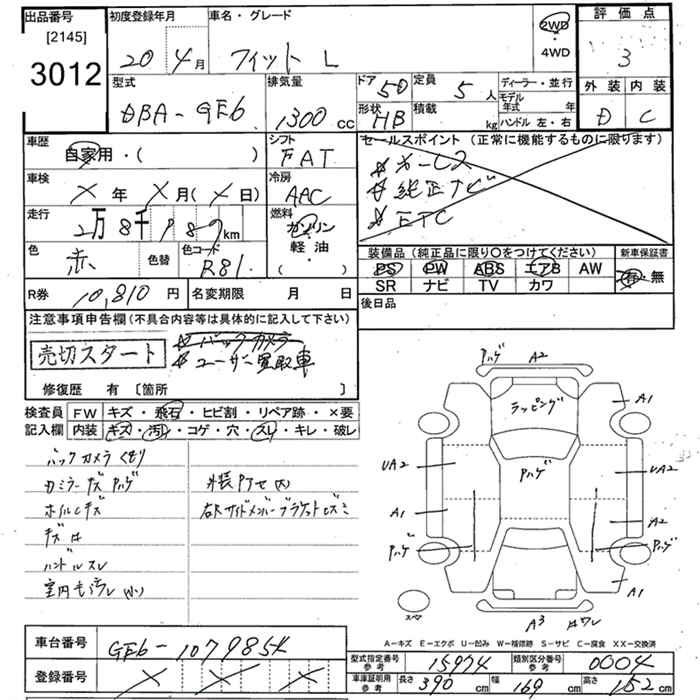 出品番号 初度登録年月 車名・グレード 評価点
[2145] 2WD
3012 20 4月 フィット L 4WD 3
型式 排気量 ドア 5D 定員 5人 ディーラー・並行 外装 内装
DBA-GE6 1300cc 形状 HB 積載 kg モデル年式 年 D C
ハンドル 左・右
車歴 シフト セールスポイント (正常に機能するものに限ります)
自家用・( ) FAT
車検 冷房 純正ナビ
X年 X月(X日) AAC ETC
走行 2万8千187km 燃料 ガソリン
軽油 装備品 (純正品に限り○をつけてください) 新車保証書
色 赤 色替 色コード R81 ・( ) PS PW ABS エアB AW 有・無
SR ナビ TV カワ
R券 10,810円 名変期限 月 日 後日品
注意事項申告欄(不具合内容等は具体的に記入して下さい)
バックカメラ
売切スタート ユーザー買取車
修復歴 有 〔箇所 〕
検査員 FW キズ・飛石・ヒビ割・リペア跡・×要
記入欄 内装 キズ・汚レ・コゲ・穴・スレ・キレ・破レ
バックカメラ
カミラーキズ Pハゲ 外装
ホイルキズ
ハンドルスレ
室内
Pハゲ A2
ラッピング A1
UA2 Pハゲ UA2
A1 A2
Pハゲ Pハゲ
A1
スペア A3
A－キズ E－エクボ U－凹み W－補修跡 S－サビ C－腐食 XX－交換済
車台番号 GE6-1079854
型式指定番号 参考 15974 類別区分番号 参考 0004
登録番号 X X X
車庫証明用 参考 長さ 390cm 幅 169cm 高さ 152cm